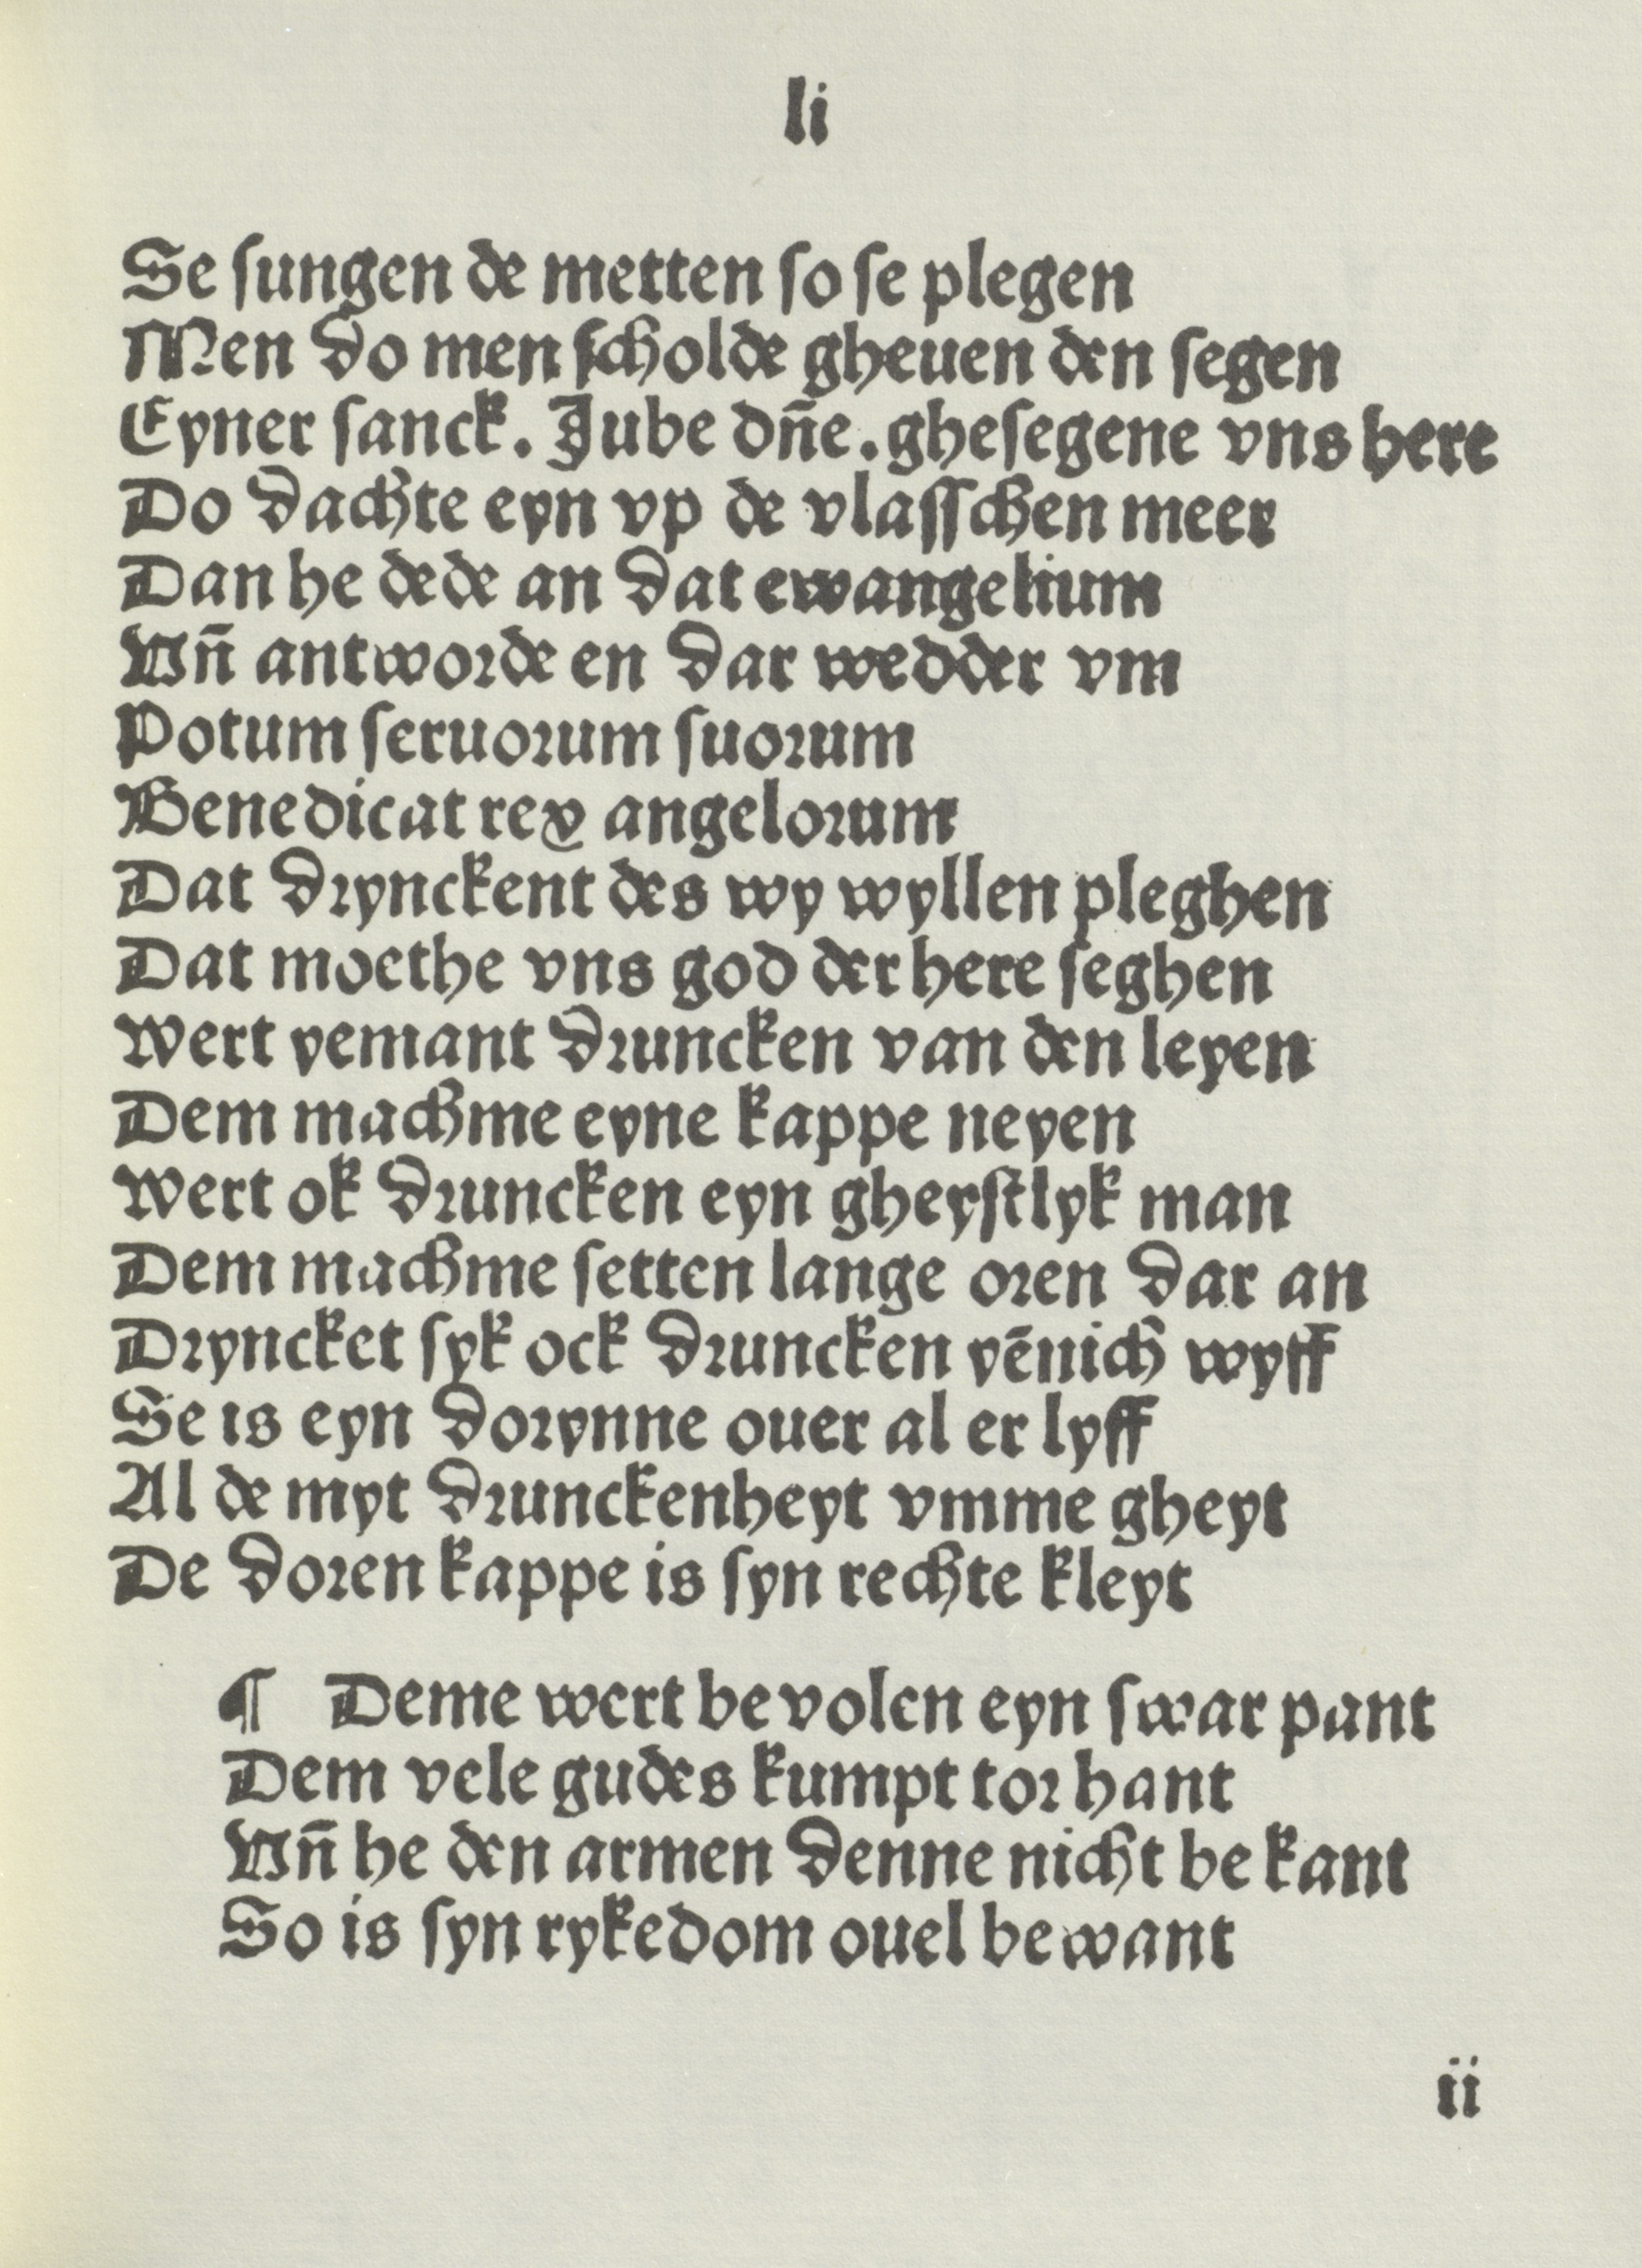 li
Se ſungen de metten ſo ſe plegen
Men do men ſcholde gheuen den ſegen
Eyner ſanck. Jube dn̄e. gheſegene vns here
Do dachte eyn vp de vlaſſchen meer
Dan he dede an dat ewangelium
Vn̄ antworde en dar wedder vm
Potum ſeruorum ſuorum
Benedicat rex angelorum
Dat drynckent des wy wyllen pleghen
Dat moethe vns god der here ſeghen
Wert yemant druncken van den leyen
Dem machme eyne kappe neyen
Wert ok druncken eyn gheyſtlyk man
Dem machme ſetten lange oren dar an
Dryncket ſyk ock druncken yēnich wyff
Se is eyn dorynne ouer al er lyff
Al de myt drunckenheyt vmme gheyt
De doren kappe is ſyn rechte kleyt
¶ Deme wert bevolen eyn ſwar pant
Dem vele gudes kumpt tor hant
Vn̄ he den armen denne nicht bekant
So is ſyn rykedom ouel bewant
ii